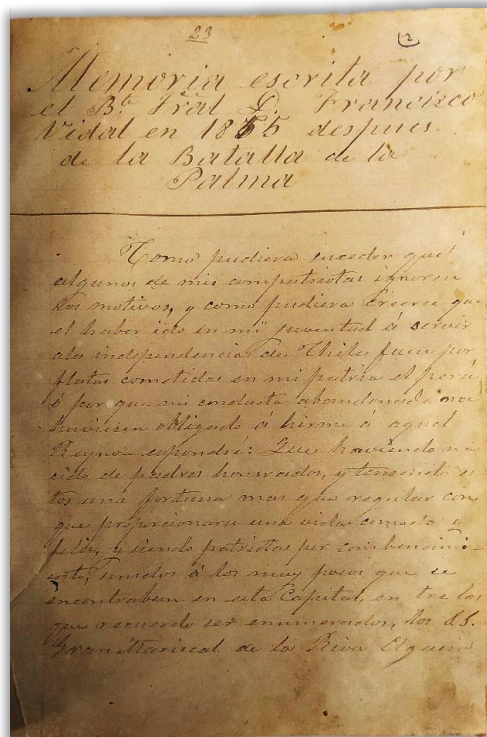 23
2
Memoria escrita por
el B.e Gral D. Francisco
Vidal en 1855 despues
de la Batalla de la
Palma
Como pudiera suceder que
algunos de mis compatriotas ignoren
los motivos, y como pudiera creerse que
el haber ido en mi juventud á servir
ala independencia de Chile fuese por
faltas cometidas en mi patria el perú
ó por que mi conducta abandonada me
huviesen obligado á hirme a aquel
Reyno espondré: Que haviendo na
cido de padres honrados, y teniendo es
tos una fortuna mas que regular con
que proporcionarse una vida comoda y
feliz, y siendo patriotas por combencimi
ento, unidos á los muy pocos que se
encontraban en esta Capital, en tre los
que recuerdo ser enumerados, los SS.
Gran Mariscal de la Riva Aguero